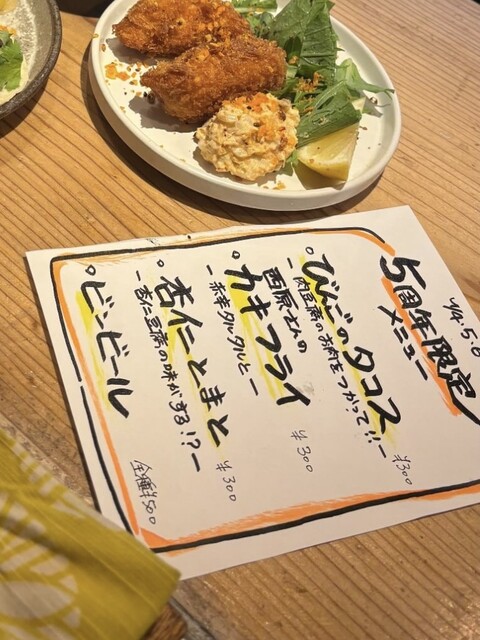 4/4・5・6
5周年限定
メニュー
びんごのタコス
肉豆腐のお肉をつかって!!ー
¥300
西原さんの
カキフライ
ー赤キタルタルとー
¥300
杏仁とまと
ー杏仁豆腐の味がする!?ー
¥300
ビンビール
全種¥500